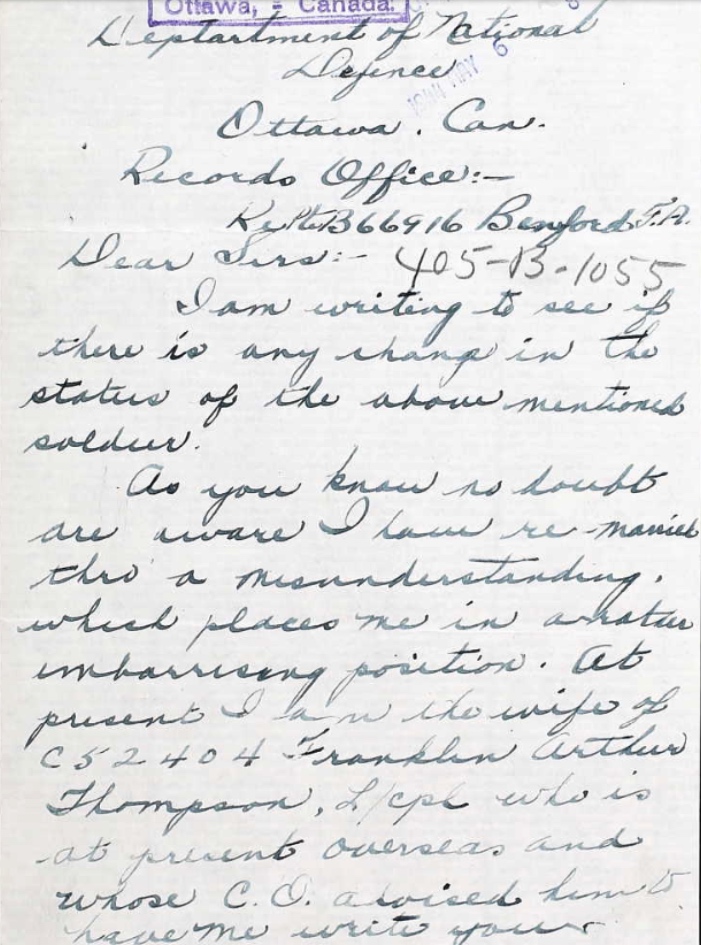 Ottawa, - Canada.
Deptartment of National
Defence
MAY 6
Ottawa. Can.
Records Office:-
Re Pte B66916 Benford F.A.
Dear Sirs:- 405-B-1055
I am writing to see if
there is any change in the
status of the above mentioned
soldier.
As you know no doubt
are aware I have re-married
thro a misunderstanding.
which places me in a rather
embarrising position. At
present I am the wife of
C52404 Franklin Arthur
Thompson, L/cpl who is
at present overseas and
whose C.O. advised him to
have me write you